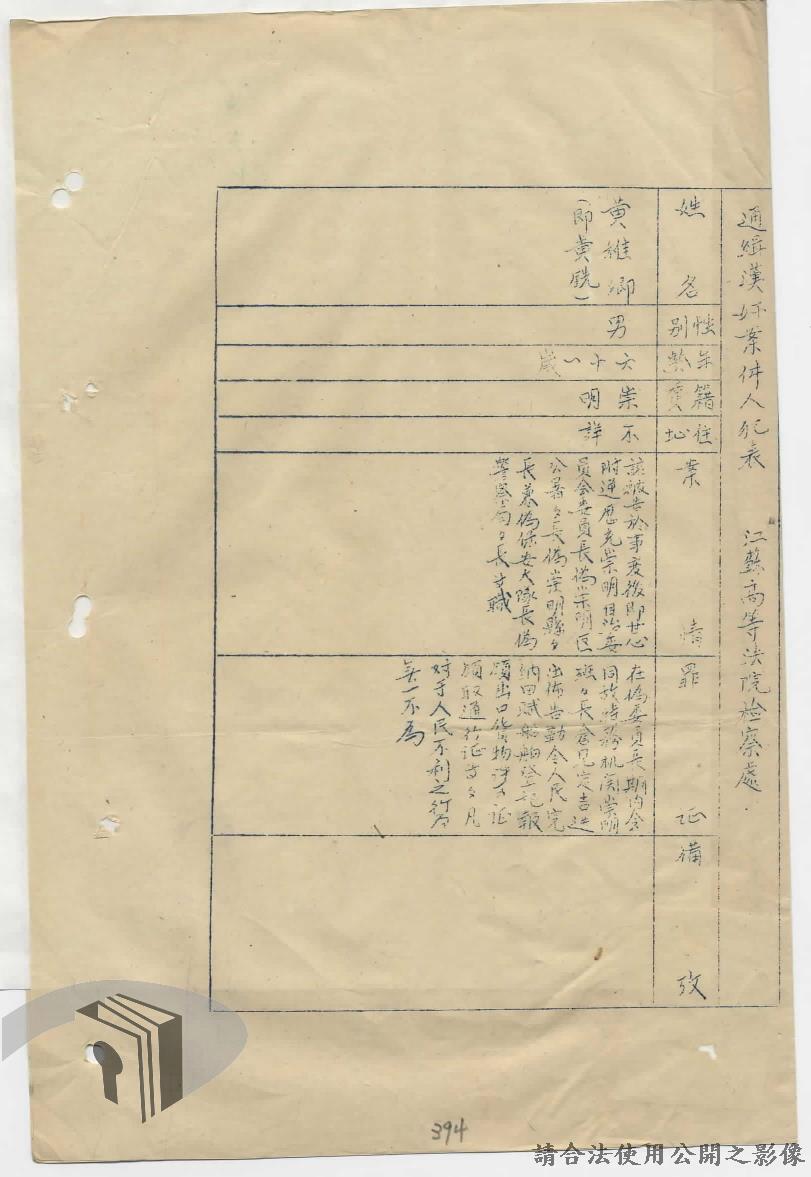 通緝漢奸案件人犯表 江蘇高等法院檢察處
姓名
黄維卿
(即黄銑)
性别
男
年齡
六十一歲
籍貫
崇明
住址
不詳
案情
該被告於事变後即甘心
附逆歷充崇明自治委
員会委員長偽崇明区
公署々長偽崇明縣々
長兼偽保安大隊長偽
警察局々長等職
罪証
在偽委員長期内会
同敌特務机関崇明
班々長
出佈告勒令人民完
納田賦船舶登記報
領出口貨物許可証
領取通行証等々凡
对于人民不利之行為
無一不為
備攷
394
請合法使用公開之影像